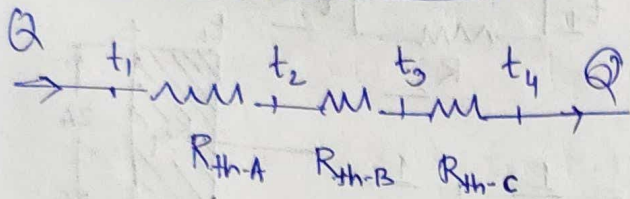 Q t₁ t₂ t₃ t₄ Q
R_th-A R_th-B R_th-C